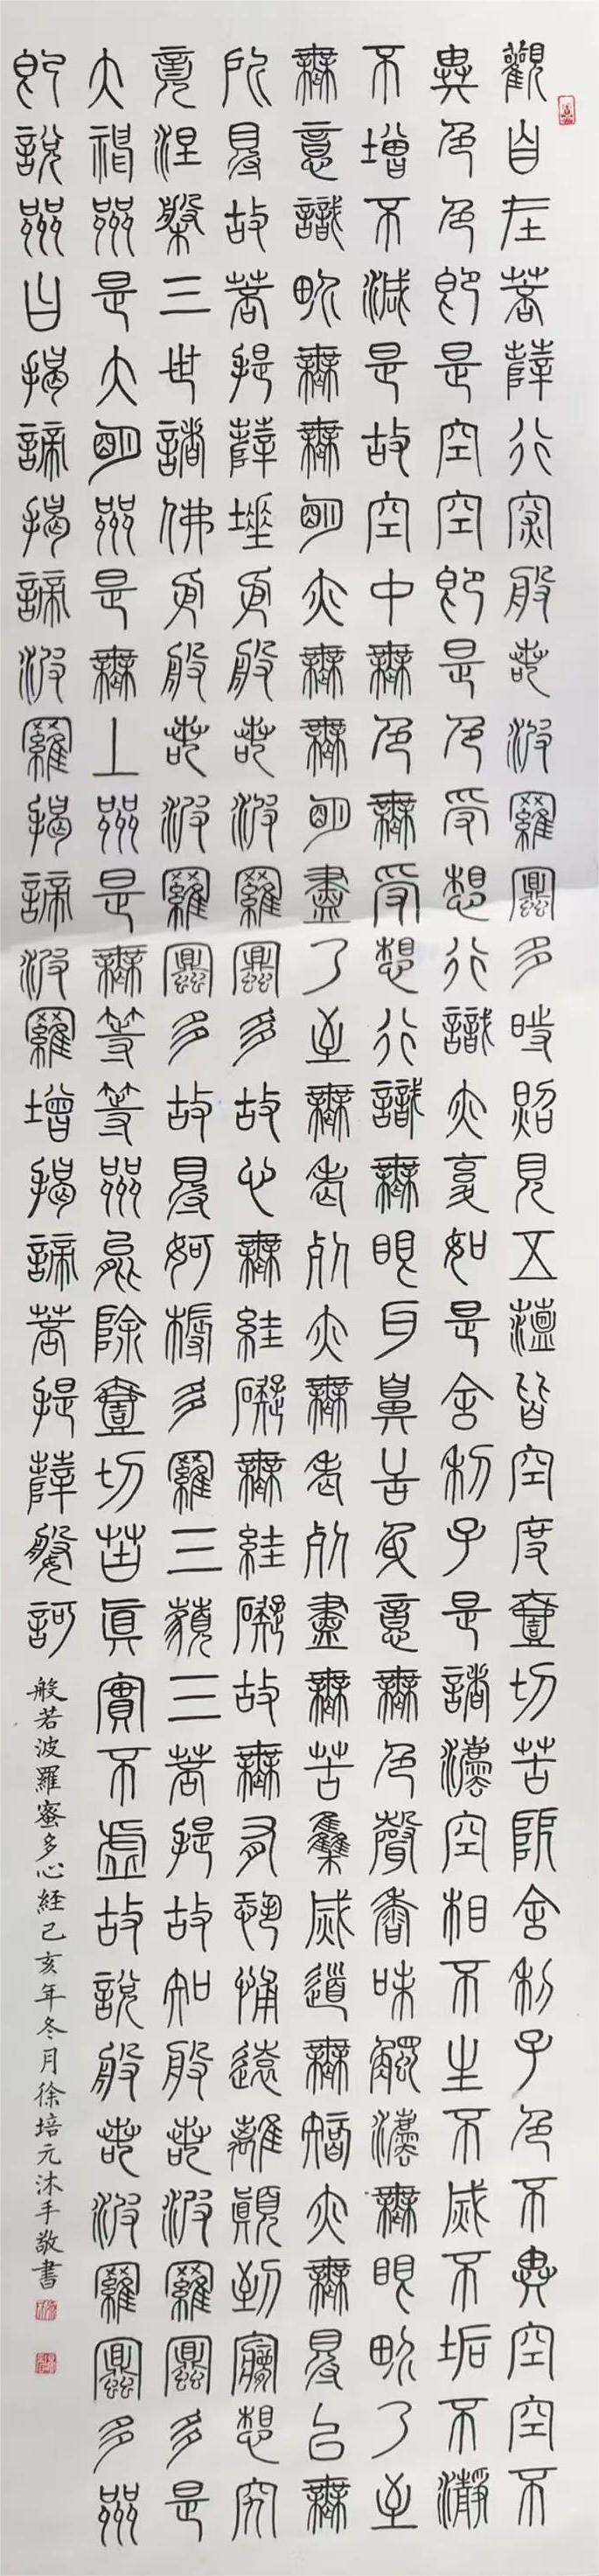 觀自在菩薩行深般若波羅蜜多時照見五蘊皆空度壹切苦厄舍利子色不異空空不
異色色即是空空即是色受想行識亦復如是舍利子是諸法空相不生不滅不垢不瀞
不增不減是故空中無色無受想行識無眼耳鼻舌身意無色聲香味觸法無眼界乃至
無意識界無無明亦無無明盡乃至無老死亦無老死盡無苦集滅道無智亦無得以無
所得故菩提薩埵依般若波羅蜜多故心無罣礙無罣礙故無有恐怖遠離顛倒夢想究
竟涅槃三世諸佛依般若波羅蜜多故得阿耨多羅三藐三菩提故知般若波羅蜜多是
大神咒是大明咒是無上咒是無等等咒能除壹切苦真實不虛故說般若波羅蜜多咒
即說咒曰揭諦揭諦波羅揭諦波羅增揭諦菩提薩婆訶
般若波羅蜜多心経己亥年冬月徐培元沐手敬書